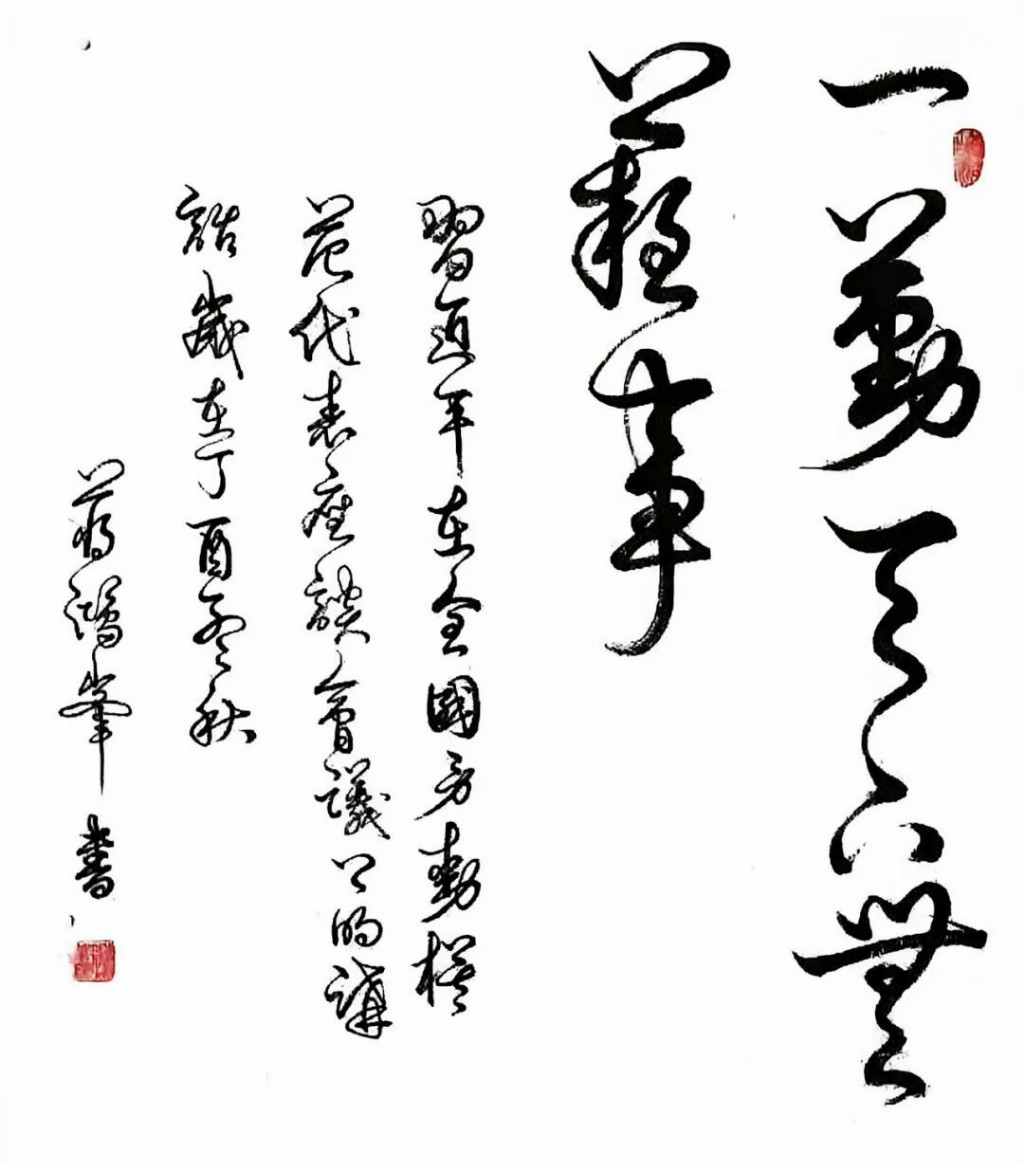 一勤天下無
難事
習近平在全國勞動模
范代表座談會議上的講
話歲在丁酉季秋
蔣鴻峰書